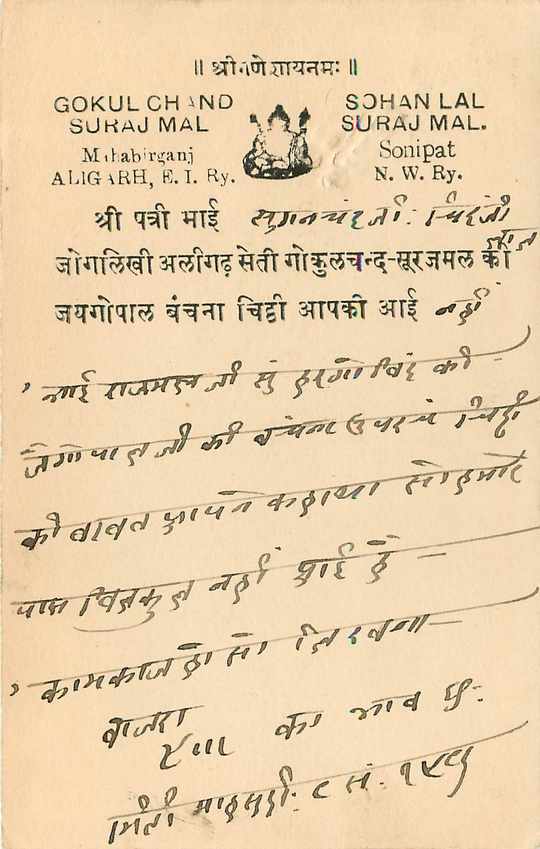 ॥ श्रीगणेशायनमः ॥
GOKUL CHAND SOHAN LAL
SURAJ MAL SURAJ MAL.
Mahabirganj Sonipat
ALIGARH, E. I. Ry. N. W. Ry.
श्री पत्री भाई सुगनचंद जी
जोगलिखी अलीगढ़ सेती गोकुलचन्द-सूरजमल की
जयगोपाल बंचना चिट्ठी आपकी आई नहीं
भाई राजमल जी सुं हरगोविंद की
जैगोपाल जी की बंचना चिट्ठी
की बाबत आपने कहाथा सो हमारे
पास बिलकुल नहीं आई है
कामकाज हो सो लिखना
बाजरा
का भाव छ:
मिती सं: